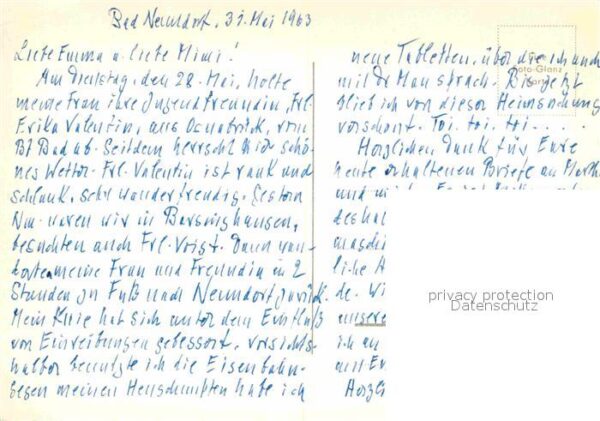 Bad Nenndorf, 31. Mai 1963
Liebe Emma u. liebe Mimi!
Am Dienstag, den 28. Mai, holte
meine Frau ihre Jugendfreundin, Frl.
Erika Valentin, aus Osnabrück, vom
Bf Bad ab. Seitdem herrscht hier schö-
nes Wetter. Frl. Valentin ist rank und
schlank, sehr wanderfreudig. Gestern
Nm. waren wir in Barsinghausen,
besuchten auch Frl. Voigt. Dann wan-
derten meine Frau und Freundin in 2
Stunden zu Fuß nach Nenndorf zurück.
Mein Knie hat sich unter dem Einfluß
von Einreibungen gebessert, vorsichts-
halber benutzte ich die Eisenbahn.
Gegen meinen Heuschnupfen habe ich
neue Tabletten, über die ich auch
mit Dr Mau sprach. Bis jetzt
blieb ich von dieser Heimsuchung
verschont. Toi. toi. toi....
Herzlichen Dank für Eure
heute erhaltenen Briefe an Marth
und
deshal
maschi
liche H
de. Wi
unsere
ich an
Foto-Glanz
Karte
privacy protection
Datenschutz